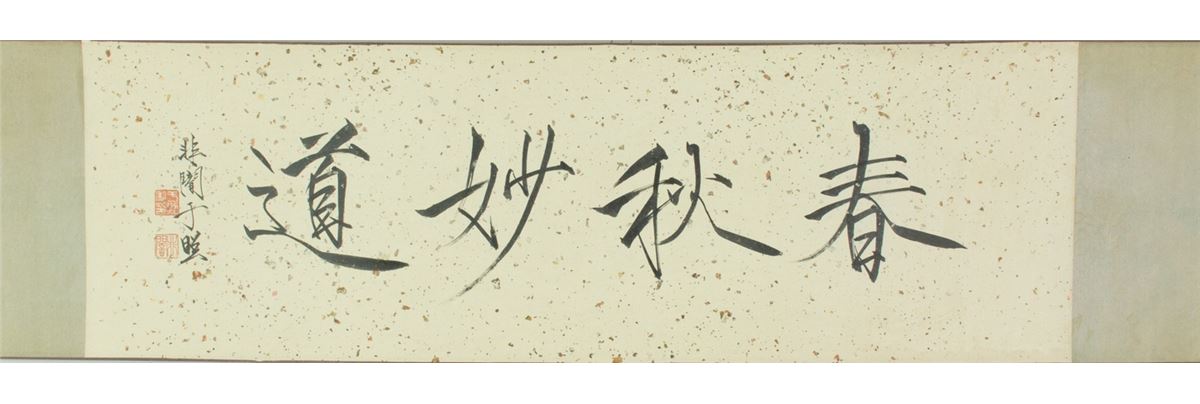 春秋妙道
非闇于照